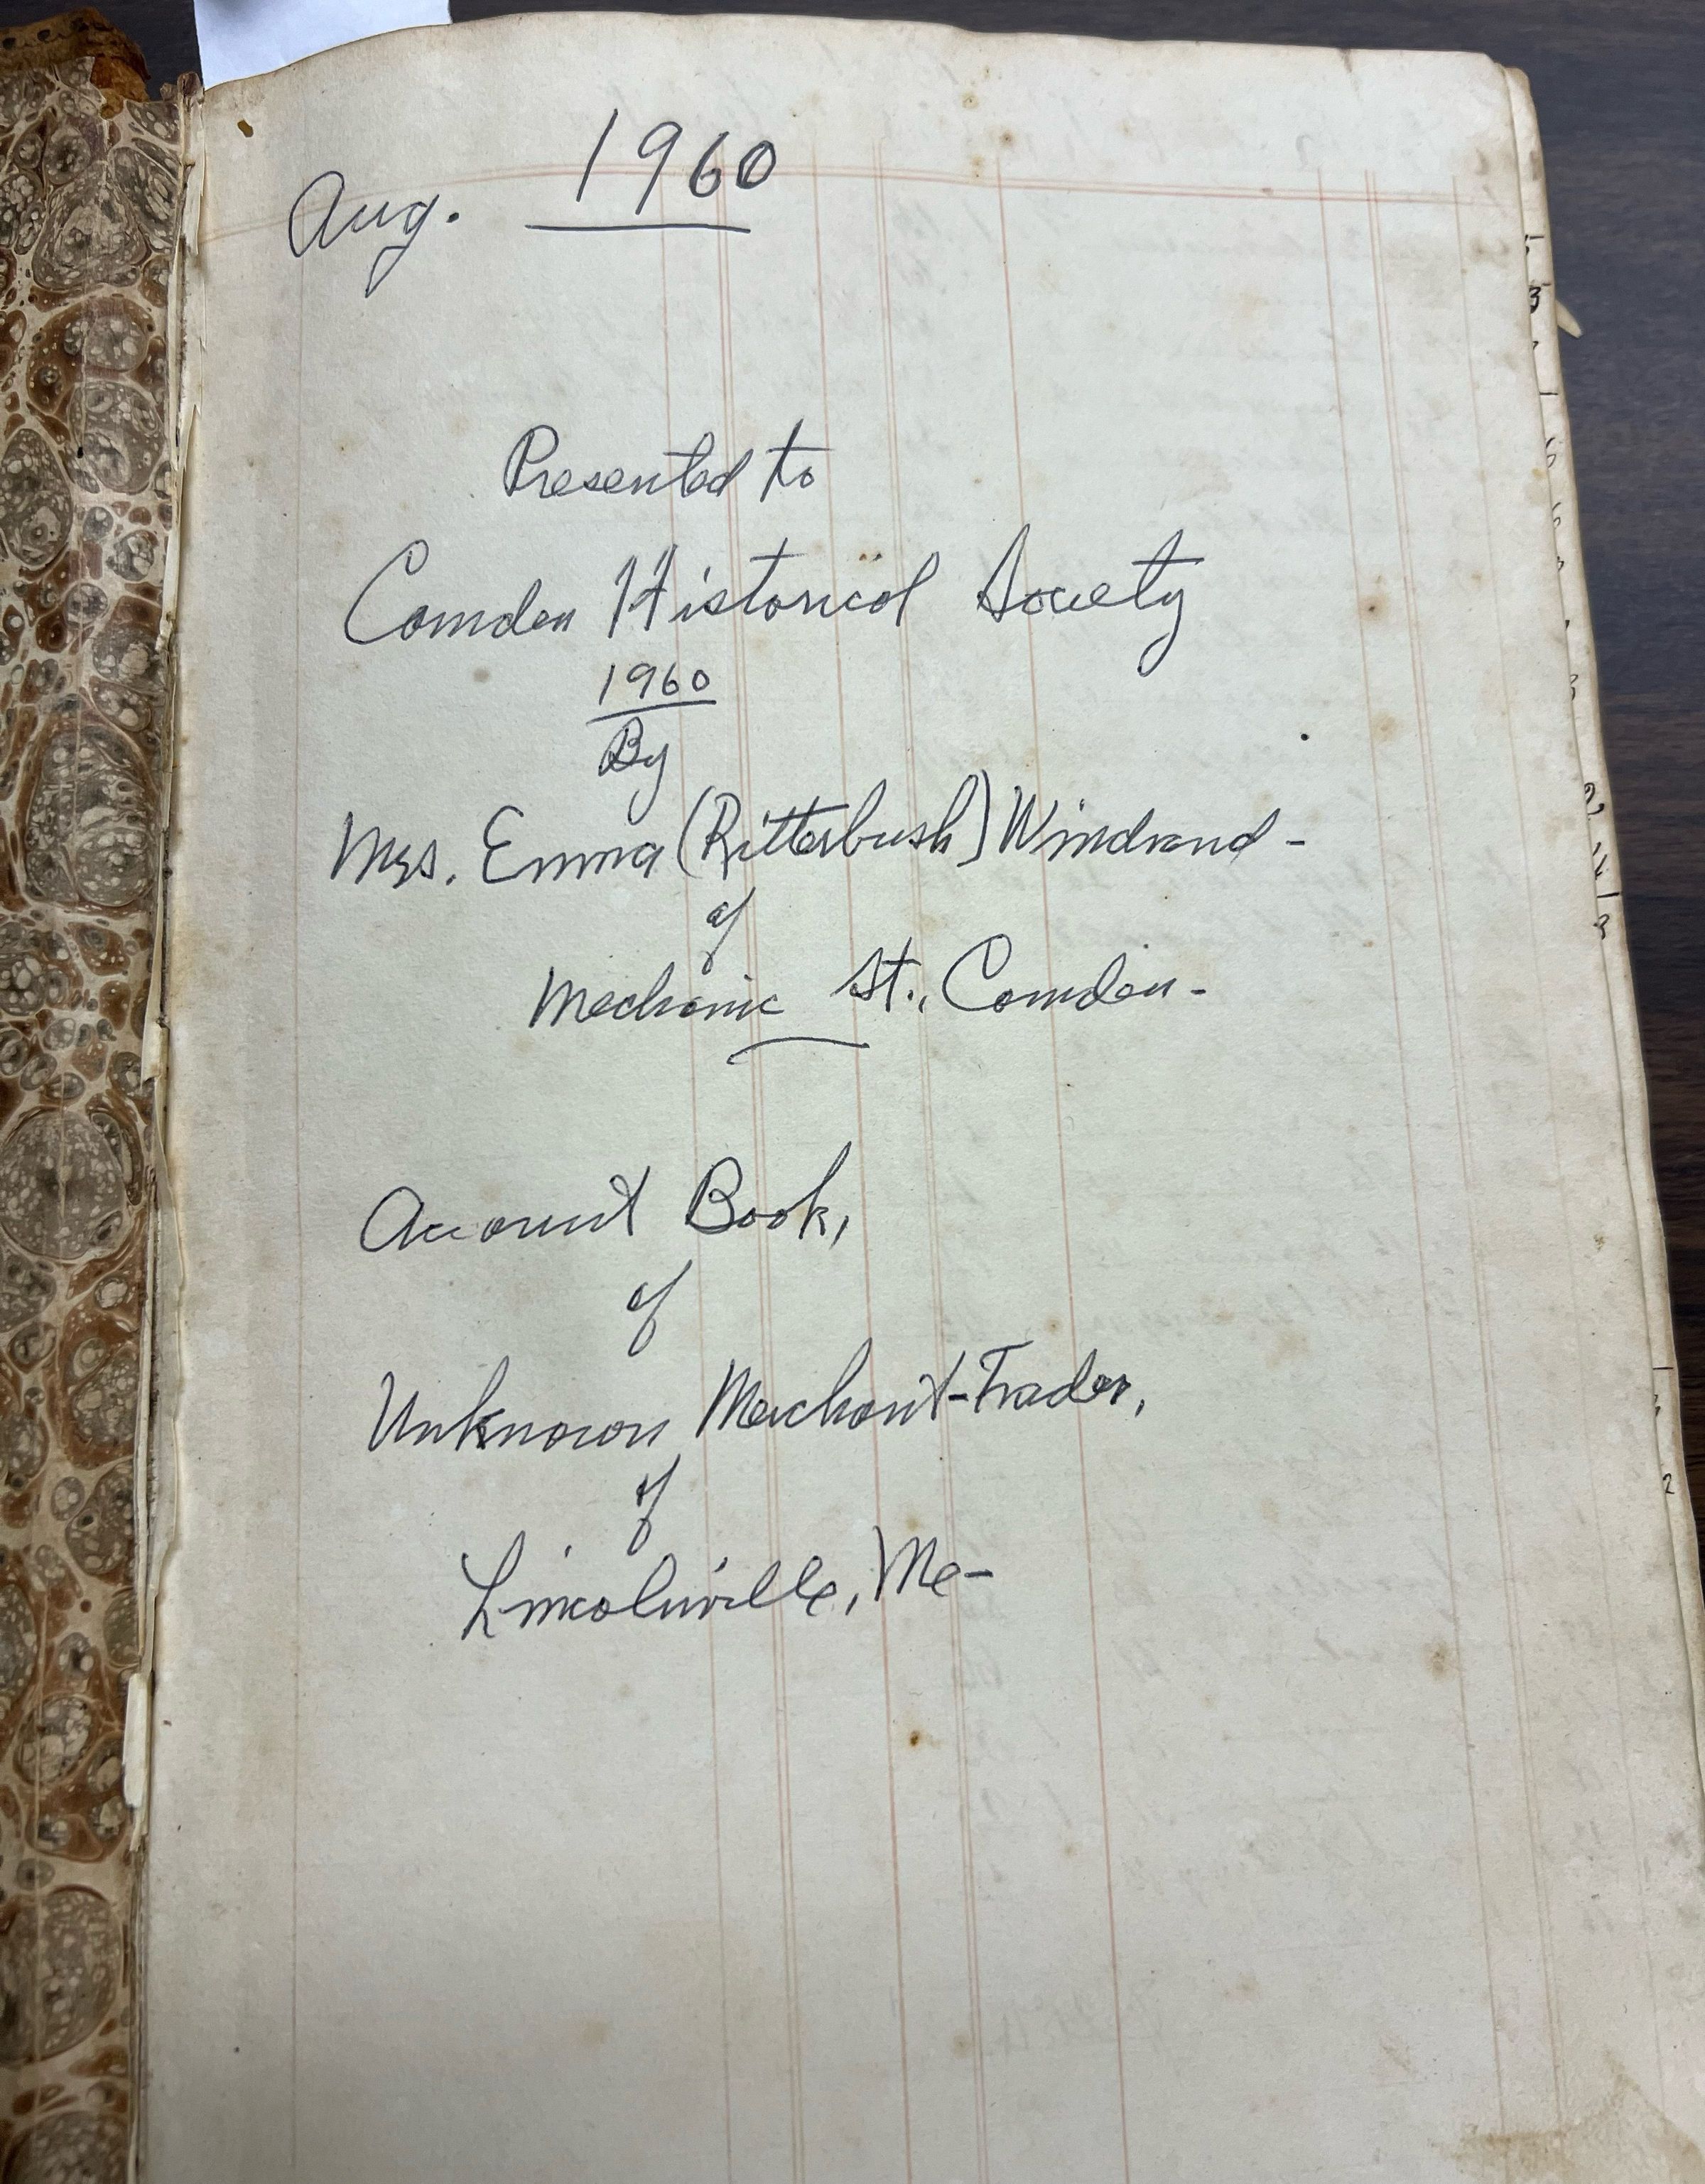 Aug. 1960
Presented to
Camden Historical Society
1960
By
Mrs. Emma (Ritterbush) Windrand -
of
Mechanic St., Camden -
Account Book,
of
Unknown Merchant-Trader,
of
Lincolnville, Me -